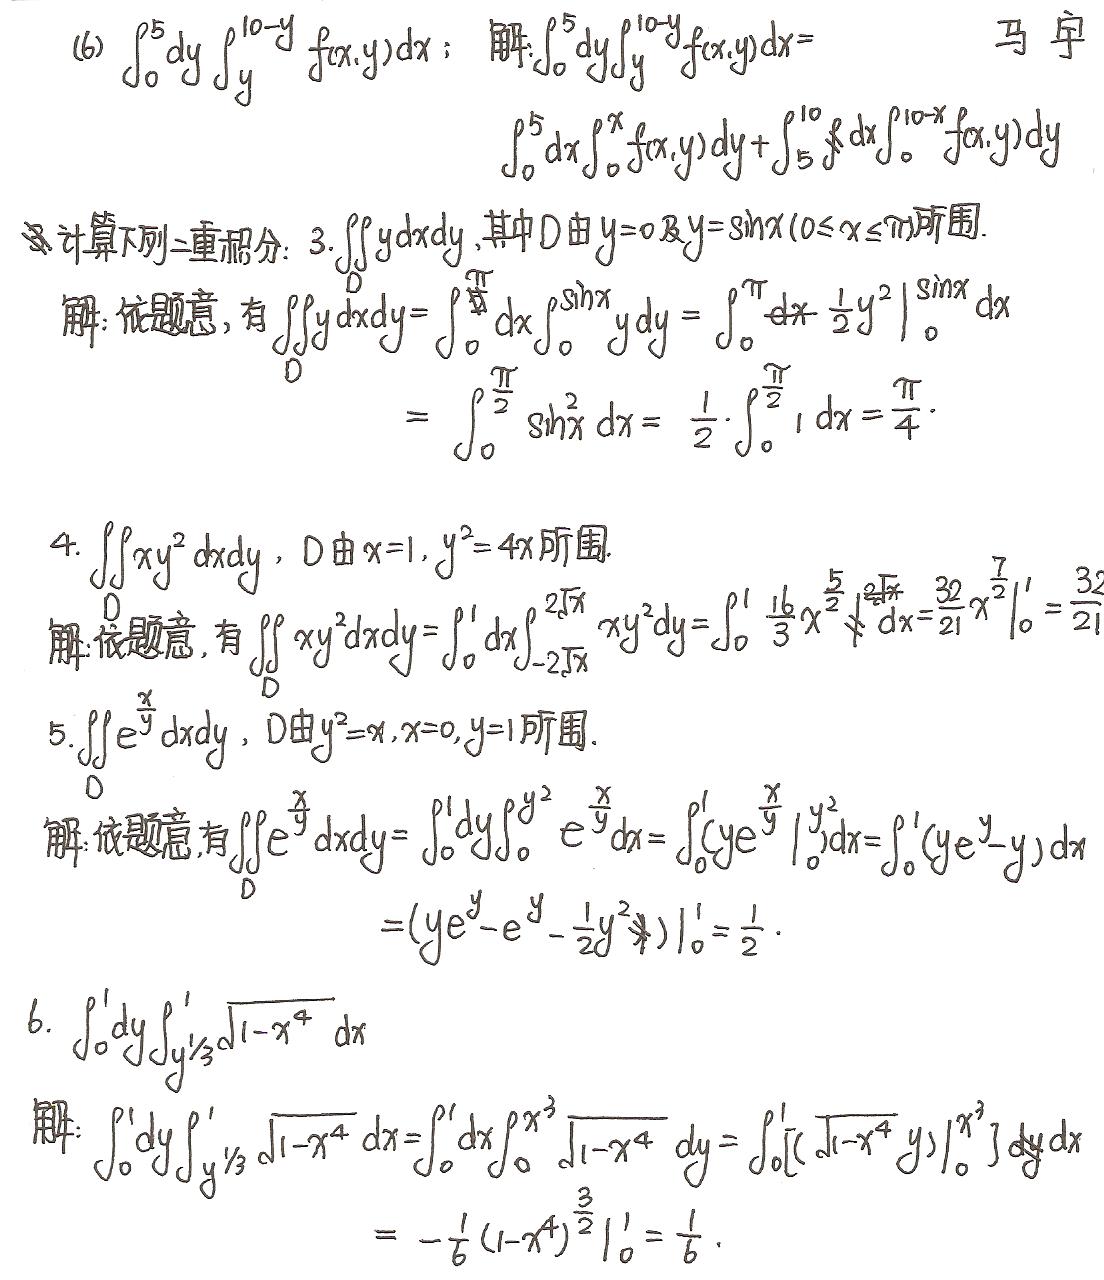 (6) ∫₀⁵dy∫_y^{10-y} f(x,y)dx; 解:∫₀⁵dy∫_y^{10-y} f(x,y)dx= 马宇
∫₀⁵dx∫₀^x f(x,y)dy+∫₅^{10}dx∫₀^{10-x} f(x,y)dy
计算下列二重积分: 3.∬_D ydxdy,其中D由y=0及y=sinx(0≤x≤π)所围.
解:依题意,有∬_D ydxdy=∫₀^π dx∫₀^{sinx} ydy=∫₀^π ½y²|₀^{sinx} dx
=∫₀^{π/2} sin²x dx= 1/2·∫₀^{π/2} 1 dx=π/4.
4. ∬_D xy²dxdy, D由x=1,y²=4x所围.
解:依题意,有∬_D xy²dxdy=∫₀¹dx∫_{-2√x}^{2√x} xy²dy=∫₀¹ 16/3 x^{5/2} dx=32/21 x^{7/2}|₀¹=32/21
5.∬_D e^{x/y}dxdy, D由y²=x,x=0,y=1所围.
解:依题意,有∬_D e^{x/y}dxdy=∫₀¹dy∫₀^{y²} e^{x/y}dx=∫₀¹(ye^{x/y}|₀^{y²})dx=∫₀¹(ye^y-y)dx
=(ye^y-e^y-½y²)|₀¹=1/2.
6. ∫₀¹dy∫_{y^{1/3}}^1 √(1-x⁴) dx
解: ∫₀¹dy∫_{y^{1/3}}^1 √(1-x⁴) dx=∫₀¹dx∫₀^{x³} √(1-x⁴) dy=∫₀¹[(√(1-x⁴) y)|₀^{x³}]dx
= -1/6 (1-x⁴)^{3/2}|₀¹=1/6.